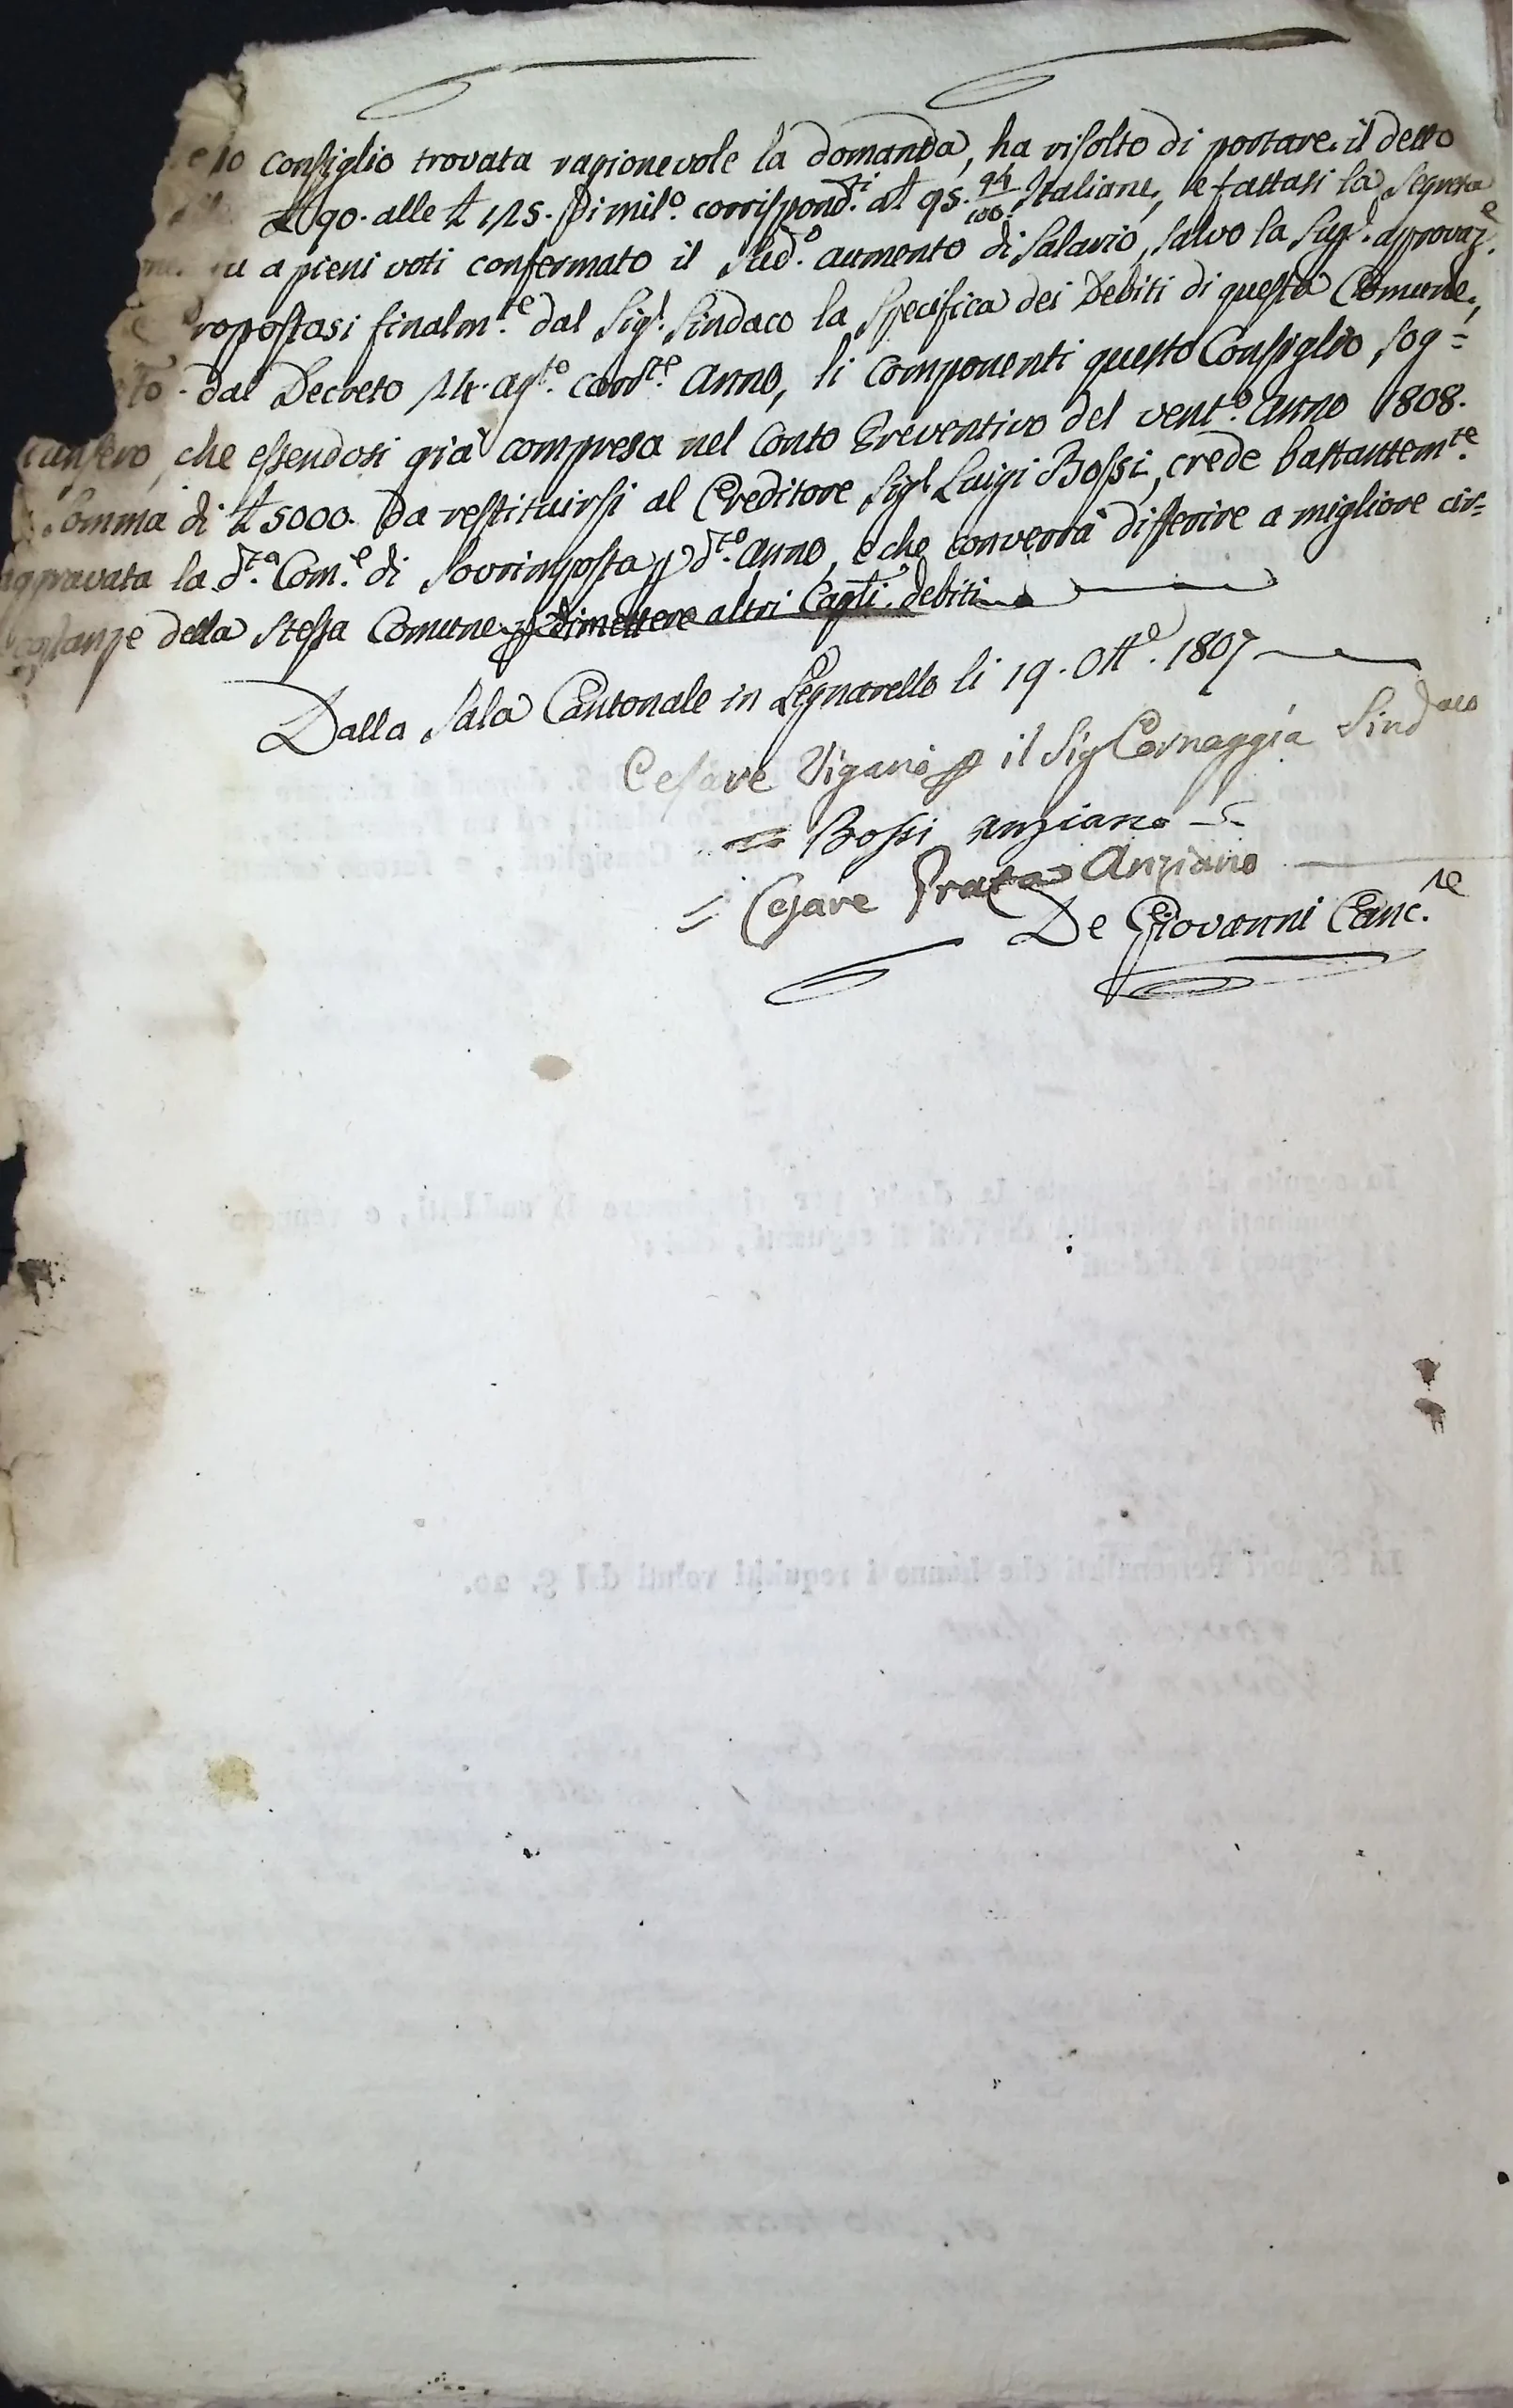 Consiglio trovata ragionevole la domanda, ha risolto di portare il detto
£ 90. alle £ 125. di mil.º corrispond.ti a £ 95. 94/100. Italiane, e fattasi la segreta
fu a pieni voti confermato il sud.º aumento di salario, salvo la sup.e approvaz.e
ropostasi finalm.te dal Sig.r Sindaco la specifica dei Debiti di questa Comune,
dal Decreto 14. ag.to corr.te Anno, li componenti questo Consiglio, sog=
iunsero, che essendosi già compresa nel Conto Preventivo del vent.º Anno 1808.
somma di £ 5000. da restituirsi al Creditore Sig.r Luigi Bossi, crede bastantem.te
aggravata la d.ta Com.e di Sovrimposta p d.to Anno, e che converrà differire a migliore cir=
costanze della stessa Comune p dimettere altri Cap.li debiti
Dalla Sala Cantonale in Legnarello li 19. Ott.e 1807
Cesare Viganò p il Sig Cornaggia Sindaco
= Bossi Anziano
= Cesare Prata Anziano
De Giovanni Canc.re